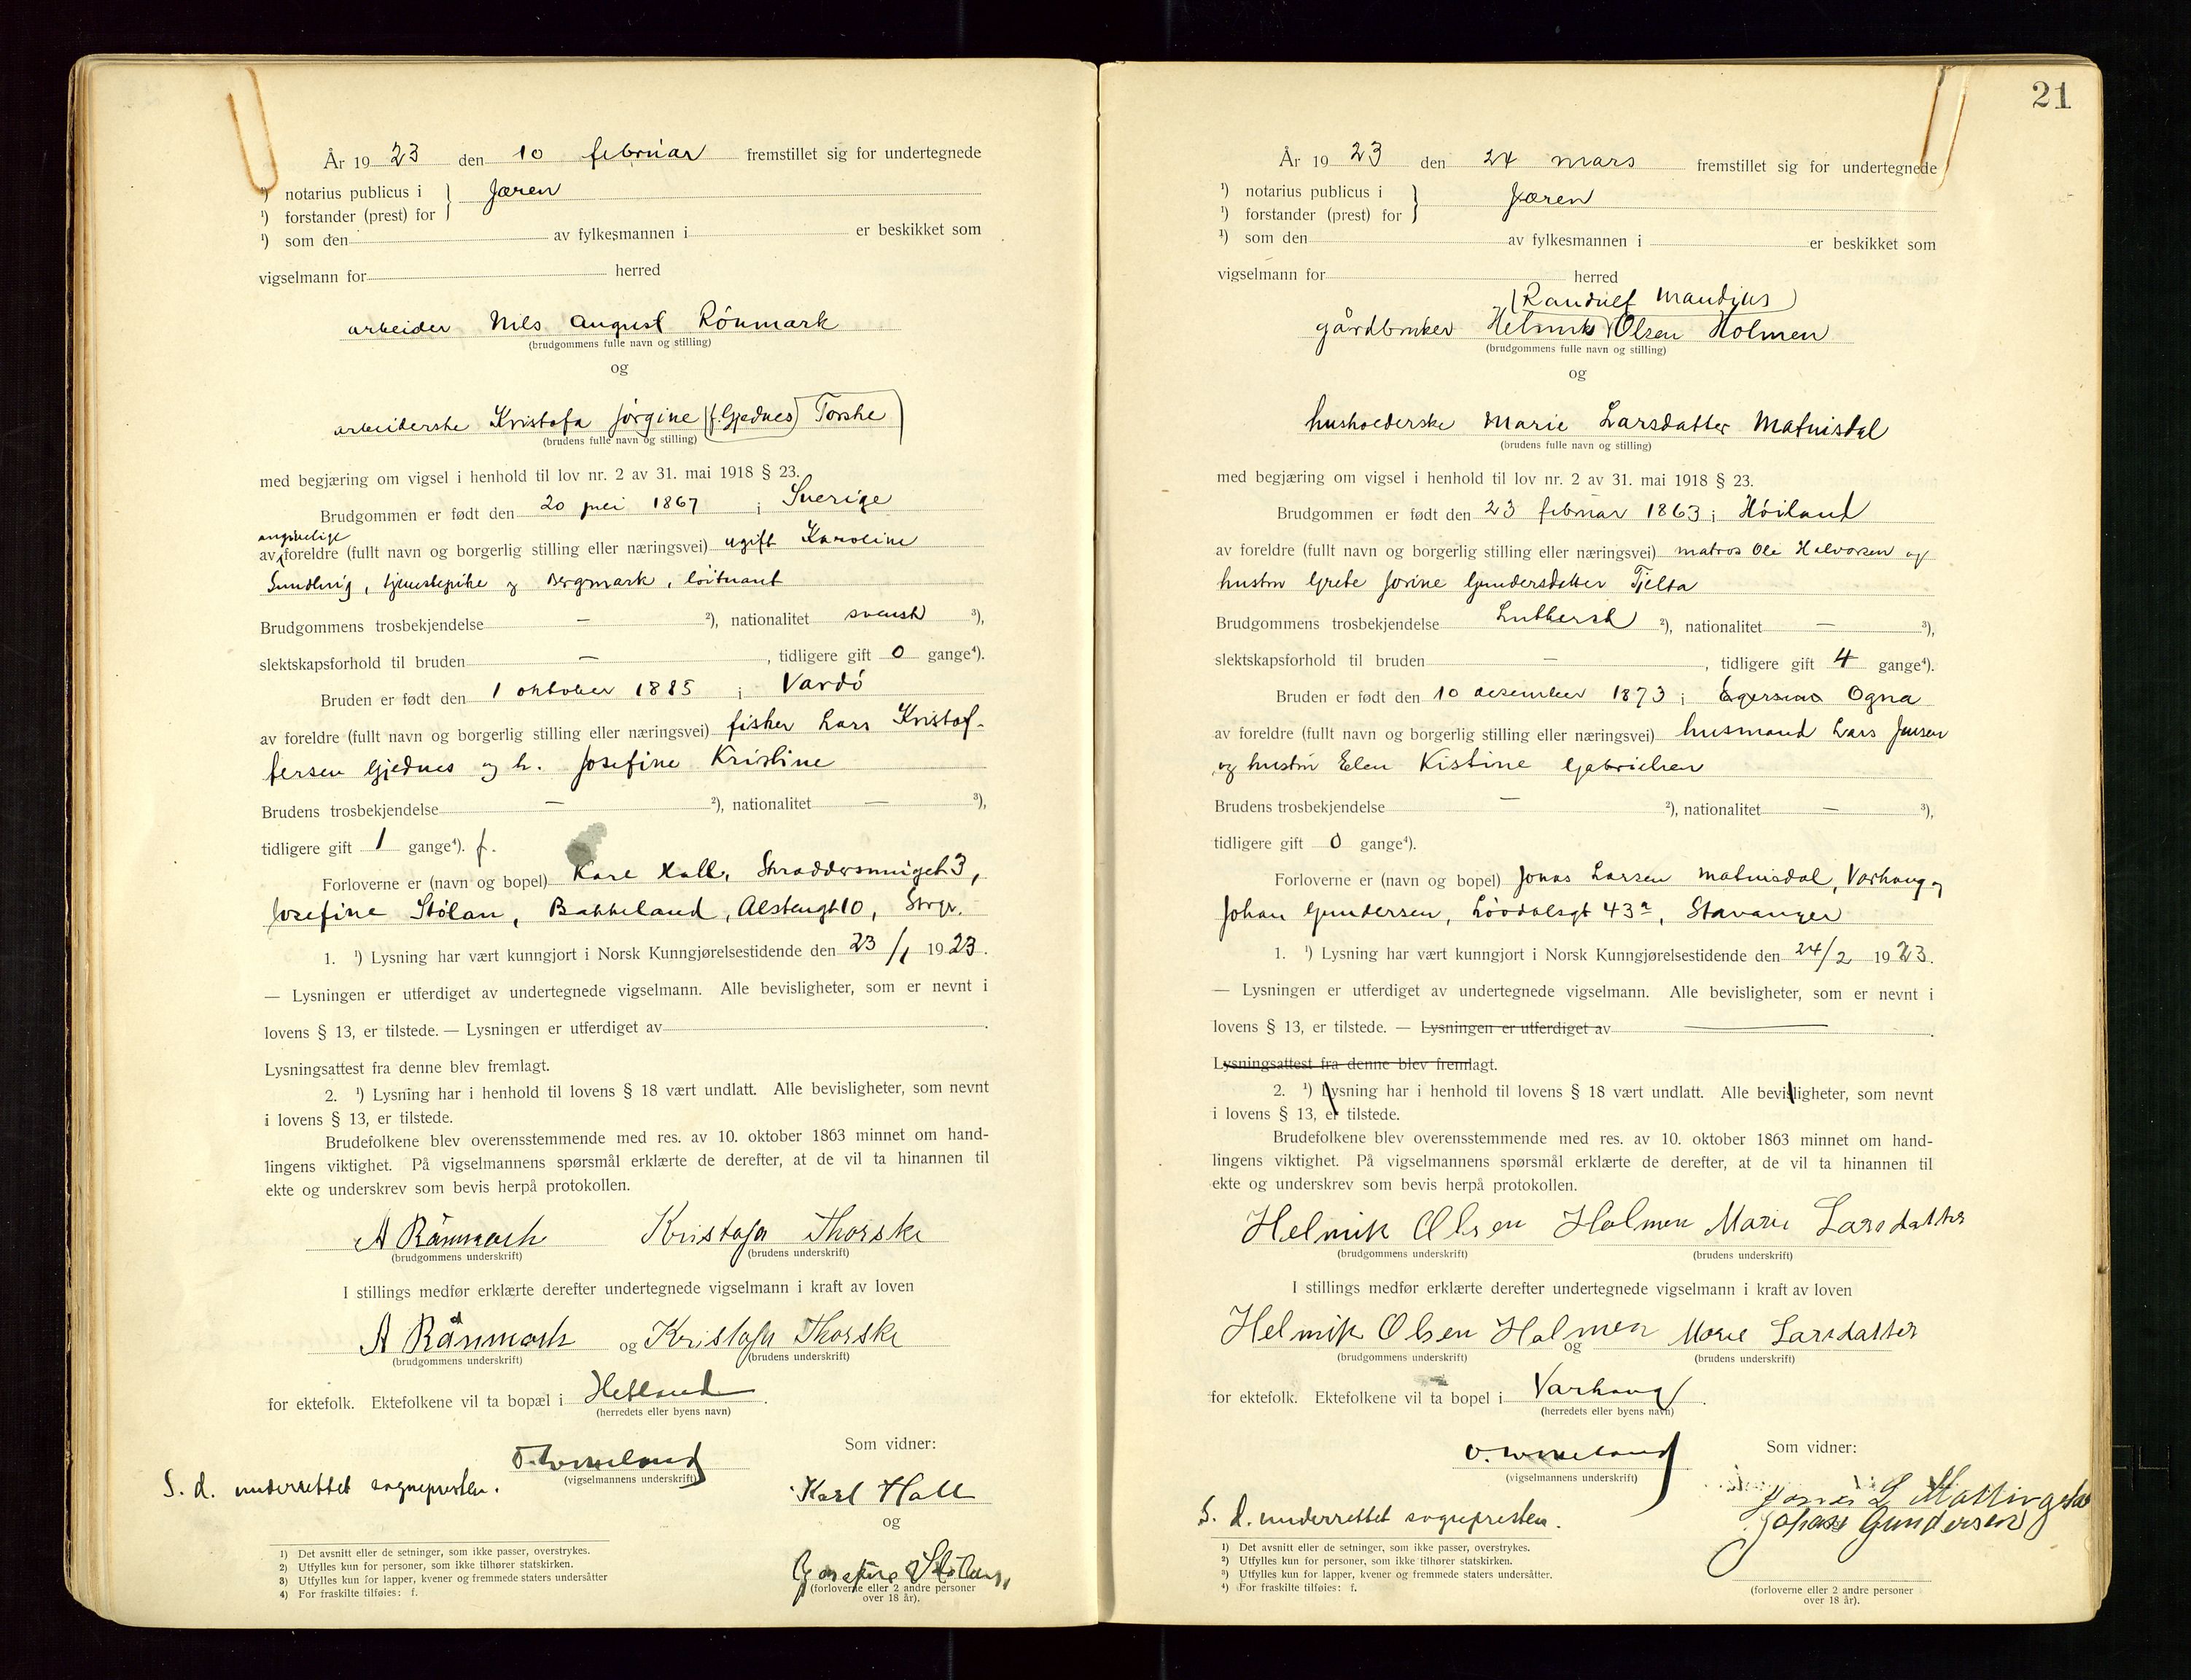 År 1923 den 10 februar fremstillet sig for undertegnede
¹) notarius publicus i } Jæren
¹) forstander (prest) for
¹) som den av fylkesmannen i er beskikket som
vigselmann for herred
arbeider Nils August Rönmark
(brudgommens fulle navn og stilling)
og
arbeiderske Kristofa Jørgine (f. Gjednes) Torske
(brudens fulle navn og stilling)
med begjæring om vigsel i henhold til lov nr. 2 av 31. mai 1918 § 23.
Brudgommen er født den 20 mei 1867 i Sverige
angivelige
av foreldre (fullt navn og borgerlig stilling eller næringsvei) ugift Karoline
Sundling, tjenestepike og Bergmark, løitnant
Brudgommens trosbekjendelse — ²), nationalitet svensk ³),
slektskapsforhold til bruden —, tidligere gift 0 gange⁴).
Bruden er født den 1 oktober 1885 i Vardö
av foreldre (fullt navn og borgerlig stilling eller næringsvei) fisker Lars Kristof-
fersen Gjednes og h. Josefine Kristine
Brudens trosbekjendelse — ²), nationalitet — ³),
tidligere gift 1 gange⁴). f.
Forloverne er (navn og bopel) Karl Hall, 3,
Josefine Stölan, Bakkeland, 10, Stvgr.
1. ¹) Lysning har vært kunngjort i Norsk Kunngjørelsestidende den 23/1 1923.
— Lysningen er utferdiget av undertegnede vigselmann. Alle bevisligheter, som er nevnt i
lovens § 13, er tilstede. — Lysningen er utferdiget av
Lysningsattest fra denne blev fremlagt.
2. ¹) Lysning har i henhold til lovens § 18 vært undlatt. Alle bevisligheter, som nevnt
i lovens § 13, er tilstede.
Brudefolkene blev overensstemmende med res. av 10. oktober 1863 minnet om hand-
lingens viktighet. På vigselmannens spørsmål erklærte de derefter, at de vil ta hinannen til
ekte og underskrev som bevis herpå protokollen.
A Rånmark Kristofa Thorske
(brudgommens underskrift) (brudens underskrift)
I stillings medfør erklærte derefter undertegnede vigselmann i kraft av loven
A Rånmark og Kristofa Thorske
(brudgommens underskrift) (brudens underskrift)
for ektefolk. Ektefolkene vil ta bopæl i Hetland.
(herredets eller byens navn)
Som vidner:
(vigselmannens underskrift)
S. d. underrettet sognepresten.
Karl Hall
og
Josefine Stölan,
(forloverne eller 2 andre personer
over 18 år).
1) Det avsnitt eller de setninger, som ikke passer, overstrykes.
2) Utfylles kun for personer, som ikke tilhører statskirken.
3) Utfylles kun for lapper, kvener og fremmede staters undersåtter
4) For fraskilte tilføies: f.
21
År 1923 den 24 mars fremstillet sig for undertegnede
¹) notarius publicus i } Jæren
¹) forstander (prest) for
¹) som den av fylkesmannen i er beskikket som
vigselmann for herred
(Randulf Mandius)
gårdbruker Helmik Olsen Holmen
(brudgommens fulle navn og stilling)
og
husholderske Marie Larsdatter Matnisdal
(brudens fulle navn og stilling)
med begjæring om vigsel i henhold til lov nr. 2 av 31. mai 1918 § 23.
Brudgommen er født den 23 februar 1863 i Höiland
av foreldre (fullt navn og borgerlig stilling eller næringsvei) matros Ole Halvorsen og
hustru Grete Jorine Gundersdatter Tjelta
Brudgommens trosbekjendelse Luthersk ²), nationalitet — ³),
slektskapsforhold til bruden —, tidligere gift 4 gange⁴).
Bruden er født den 10 desember 1873 i Egersund Ogna
av foreldre (fullt navn og borgerlig stilling eller næringsvei) husmand Lars Jensen
og hustru Elen Kistine Gabrielsen
Brudens trosbekjendelse — ²), nationalitet — ³),
tidligere gift 0 gange⁴).
Forloverne er (navn og bopel) Jonas Larsen Matnisdal, Varhaug og
Johan Gundersen, Lövdalsgt 43ª, Stavanger
1. ¹) Lysning har vært kunngjort i Norsk Kunngjørelsestidende den 24/2 1923.
— Lysningen er utferdiget av undertegnede vigselmann. Alle bevisligheter, som er nevnt i
lovens § 13, er tilstede. — Lysningen er utferdiget av —
Lysningsattest fra denne blev fremlagt.
2. ¹) Lysning har i henhold til lovens § 18 vært undlatt. Alle bevisligheter, som nevnt
i lovens § 13, er tilstede.
Brudefolkene blev overensstemmende med res. av 10. oktober 1863 minnet om hand-
lingens viktighet. På vigselmannens spørsmål erklærte de derefter, at de vil ta hinannen til
ekte og underskrev som bevis herpå protokollen.
Helmik Olsen Holmen Marie Larsdatter
(brudgommens underskrift) (brudens underskrift)
I stillings medfør erklærte derefter undertegnede vigselmann i kraft av loven
Helmik Olsen Holmen og Marie Larsdatter
(brudgommens underskrift) (brudens underskrift)
for ektefolk. Ektefolkene vil ta bopel i Varhaug.
(herredets eller byens navn)
Som vidner:
(vigselmannens underskrift)
Jonas L Mattingsdal
Johan Gundersen
S. d. underrettet sognepresten.
(forloverne eller 2 andre personer
over 18 år).
¹) Det avsnitt eller de setninger, som ikke passer, overstrykes.
²) Utfylles kun for personer, som ikke tilhører statskirken.
³) Utfylles kun for lapper, kvener og fremmede staters undersåtter.
⁴) For fraskilte tilføies: f.